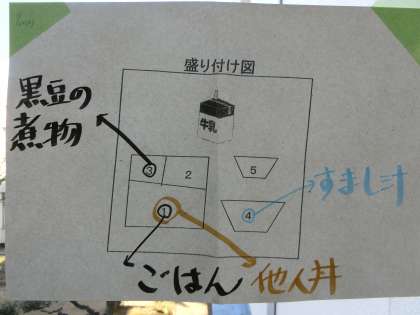 盛り付け図
黒豆の
煮物
牛乳
③
2
5
①
④
すまし汁
ごはん
他人丼